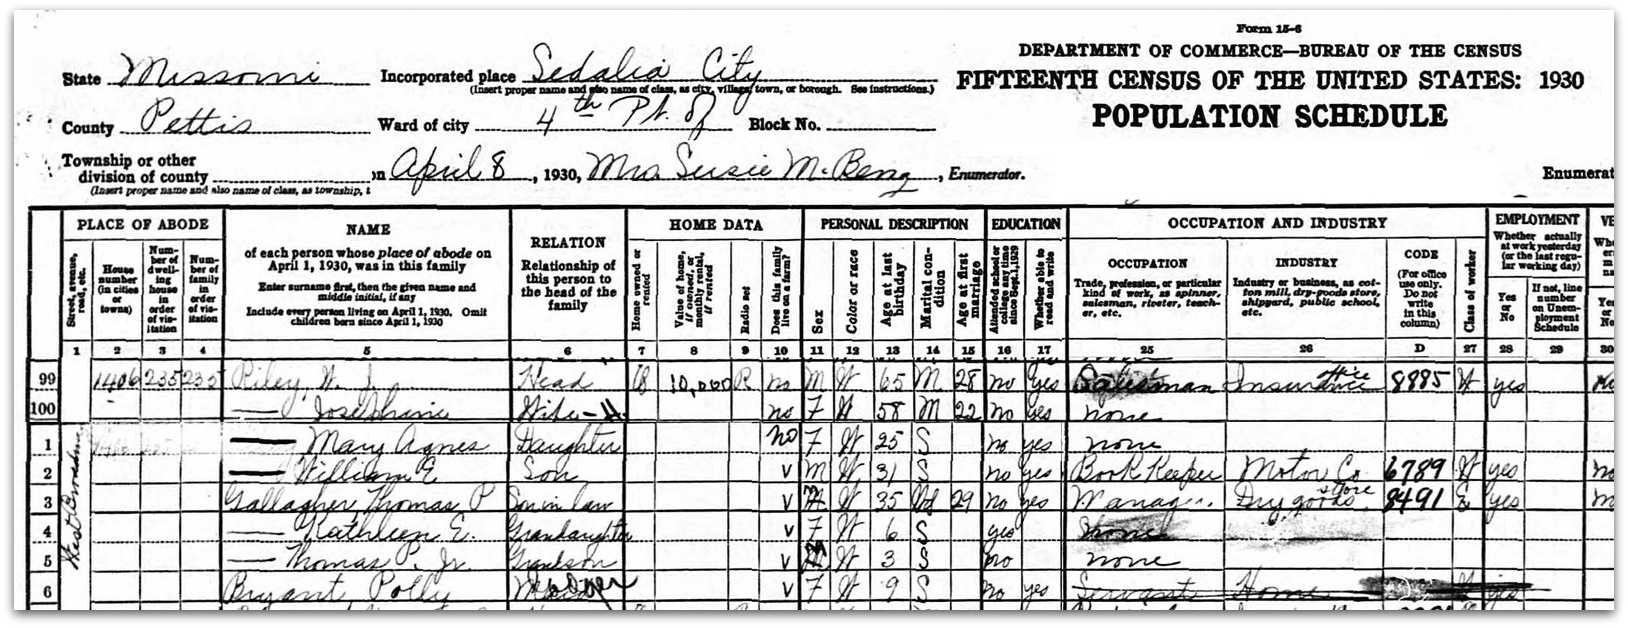 Form 15-6
DEPARTMENT OF COMMERCE—BUREAU OF THE CENSUS
FIFTEENTH CENSUS OF THE UNITED STATES: 1930
POPULATION SCHEDULE
State Missouri Incorporated place Sedalia City
(Insert proper name and also name of class, as city, village, town, or borough. See instructions.)
County Pettis Ward of city 4th Pt. of Block No.
Township or other division of county on April 8, 1930, Mrs Susie M. Berry, Enumerator. Enumerat
(Insert proper name and also name of class, as township, t
PLACE OF ABODE
Street, avenue, road, etc.
House number (in cities or towns)
Number of dwelling house in order of visitation
Number of family in order of visitation
NAME
of each person whose place of abode on April 1, 1930, was in this family
Enter surname first, then the given name and middle initial, if any
Include every person living on April 1, 1930. Omit children born since April 1, 1930
RELATION
Relationship of this person to the head of the family
HOME DATA
Home owned or rented
Value of home, if owned, or monthly rental, if rented
Radio set
Does this family live on a farm?
PERSONAL DESCRIPTION
Sex
Color or race
Age at last birthday
Marital condition
Age at first marriage
EDUCATION
Attended school or college any time since Sept. 1, 1929
Whether able to read and write
OCCUPATION AND INDUSTRY
OCCUPATION
Trade, profession, or particular kind of work, as spinner, salesman, riveter, teacher, etc.
INDUSTRY
Industry or business, as cotton mill, dry-goods store, shipyard, public school, etc.
CODE
(For office use only. Do not write in this column)
Class of worker
EMPLOYMENT
Whether actually at work yesterday (or the last regular working day)
Yes or No
If not, line number on Unemployment Schedule
VE
1 2 3 4 5 6 7 8 9 10 11 12 13 14 15 16 17 25 26 D 27 28 29 30
99 1406 235 235 Riley W. J. Head O 10,000 R no M W 65 M 28 no yes Salesman Insurance office 8885 W yes
100 — Josephine Wife-H no F W 58 M 22 no yes none
West Broadway
1 — Mary Agnes Daughter no F W 25 S no yes none
2 — William E Son v M W 31 S no yes Book Keeper Motor Co 6789 W yes no
3 Gallagher Thomas P Son in law v M W 35 Wd 29 no yes Manager Dry goods store 8491 E yes
4 — Kathleen E. Grandaughter v F W 6 S yes none
5 — Thomas P. Jr. Grandson v M W 3 S no none
6 Bryant Polly v F W 9 S no yes Servant Home yes